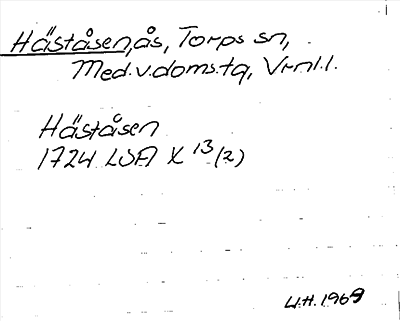 Häståsen, ås, Torps sn,
Med.v.doms.tg, Vrnl.l.
Häståsen
1724 LSA X 13 (2)
U.H. 1969